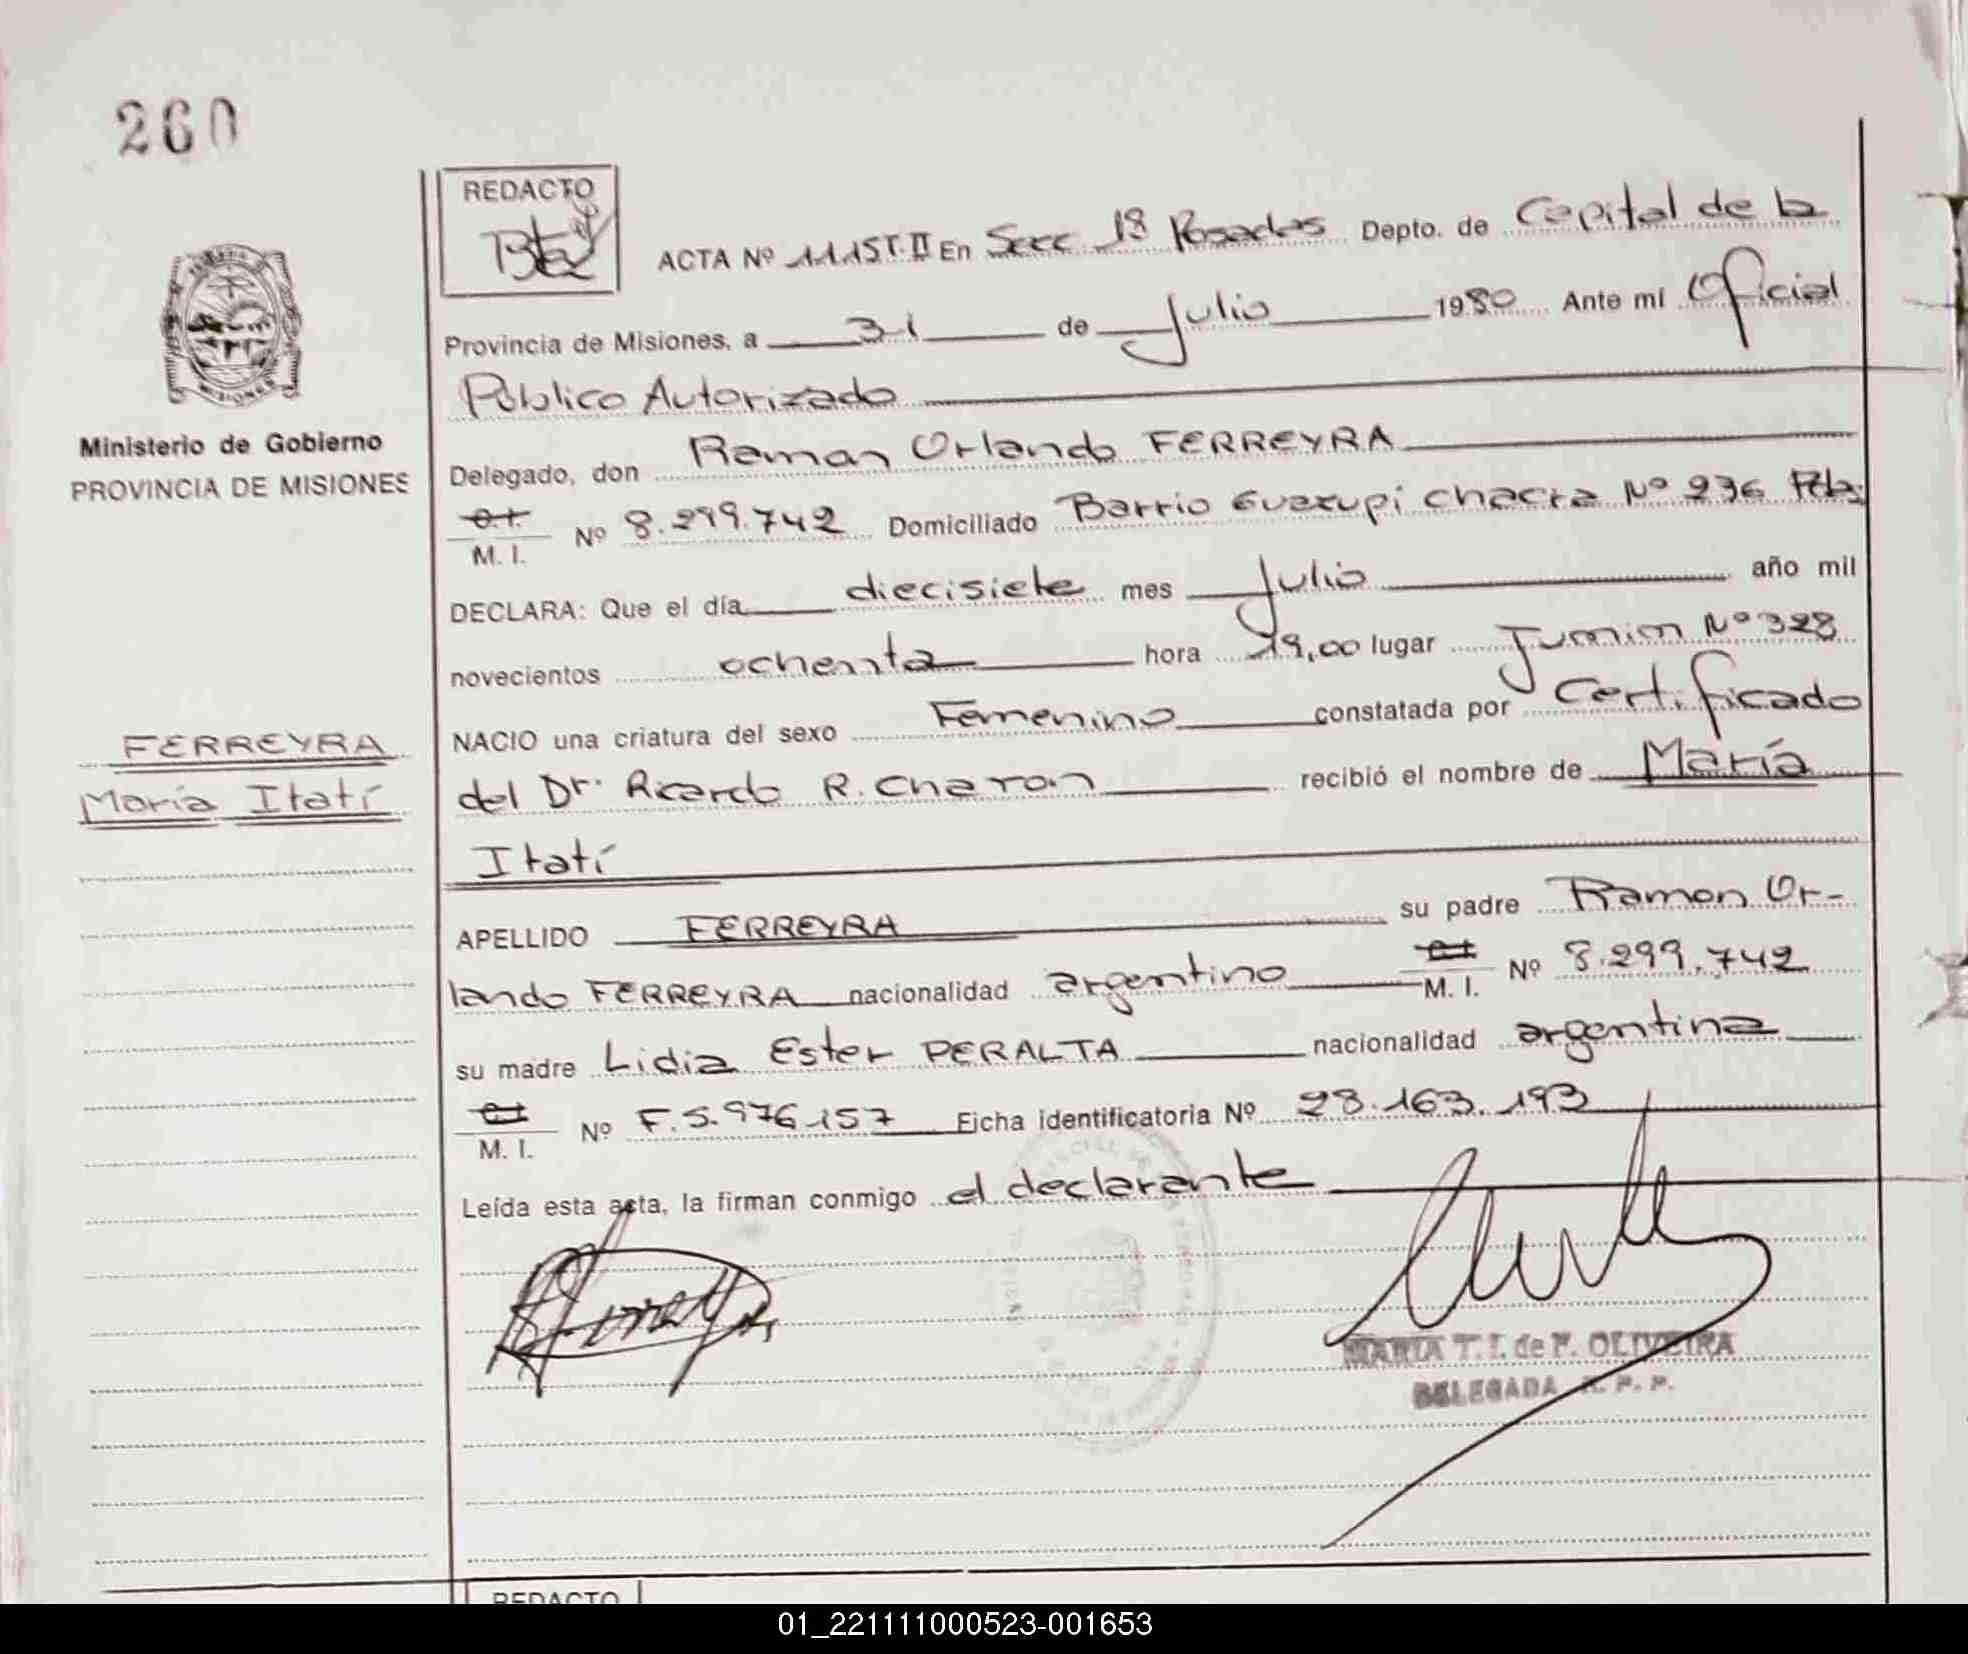 260
REDACTO
ACTA Nº 1115T.II En Secc 18 Posadas Depto. de Capital de la
Provincia de Misiones, a 31 de Julio 1980 Ante mí Oficial
Público Autorizado
Ministerio de Gobierno
PROVINCIA DE MISIONES
Delegado, don Ramon Orlando FERREYRA
C.I. M. I. Nº 8.299.742 Domiciliado Barrio Guazupi Chacra Nº 236 Pdas
DECLARA: Que el día diecisiete mes Julio año mil
novecientos ochenta hora 19,00 lugar Junin Nº 328
NACIO una criatura del sexo Femenino constatada por Certificado
FERREYRA
María Itatí
del Dr. Ricardo R. Charon recibió el nombre de María
Itatí
APELLIDO FERREYRA su padre Ramon Or-
lando FERREYRA nacionalidad argentino C.I. M. I. Nº 8.299.742
su madre Lidia Ester PERALTA nacionalidad argentina
C.I. M. I. Nº F.5.976.157 Ficha identificatoria Nº 28.163.193
Leída esta acta, la firman conmigo el declarante
MARIA T. I. de F. OLIVEIRA
DELEGADA R. P. P.
REDACTO
01_221111000523-001653